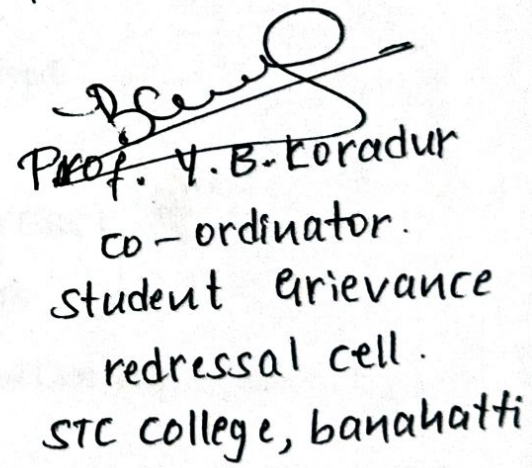 Prof. Y. B. Koradur
co-ordinator.
Student Grievance
redressal cell.
STC College, banahatti